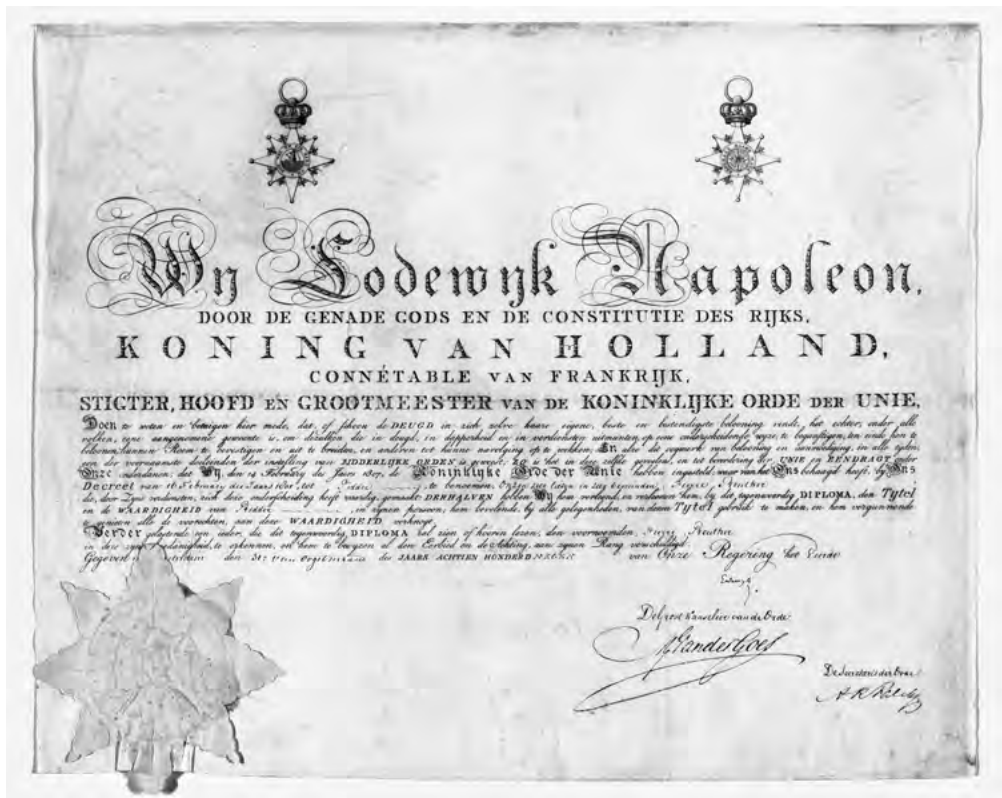 Wij Lodewijk Napoleon,
DOOR DE GENADE GODS EN DE CONSTITUTIE DES RIJKS,
KONING VAN HOLLAND,
CONNÉTABLE VAN FRANKRIJK,
STIGTER, HOOFD EN GROOTMEESTER VAN DE KONINKLIJKE ORDE DER UNIE,
Doen te weten en betuigen hier mede, dat, of schoon de DEUGD in zich zelve haare eigene, beste en bestendigste belooning vindt, het echter, onder alle
volken, eene aangenomene gewoonte is, om dezulken die in deugd, in dapperheid en in verdiensten uitmunten, op eene onderscheidende wyze, te bevestigen, ten einde hen te
beloonen, hunnen Roem te bevestigen en uit te breiden, en anderen tot hunne navolging op te wekken; En alzo dit oogmerk van belooning en aanmoediging, in alle tyden,
een der voornaamste doeleinden der instelling van RIDDERLIJKE ORDEN is geweest, Zo is het in deze zelfde, en tot bevordering der UNIE en EENDRAGT onder
Onze onderdanen, dat Wij, den 14 February des Jaars 1807, de Koninklijke Orde der Unie hebben ingesteld, waar van het Ons behaagd heeft, by Ons
Decreet van 16 February des Jaars 1807, tot Ridder te benoemen, Pieter Reuther
die, door Zijne verdiensten, zich deze onderscheiding heeft waardig gemaakt DERHALVEN hebben Wij hem verleend, en verleenen hem, by dit, tegenwoordig DIPLOMA, den Tytel
en de WAARDIGHEID van Ridder, in zijnen persoon; hem bevelende, by alle gelegenheden, van dezen Tytel gebruik te maken, en hem vergunnende
te genieten alle de voorrechten, aan deze WAARDIGHEID verknogt.
Verder gelastende een ieder, die dit tegenwoordig DIPLOMA zal zien of hooren lezen, den voornoemden Reuther
in deze zyne hoedanigheid, te erkennen, en hem te bewyzen al den Eerbied en de Achting, aan zynen Rang verschuldigd.
Gegeven den van DES JAARS ACHTIEN HONDERD van Onze Regering het
De Groot Kanselier van de Orde
VanderGoes
De Secretaris der Orde